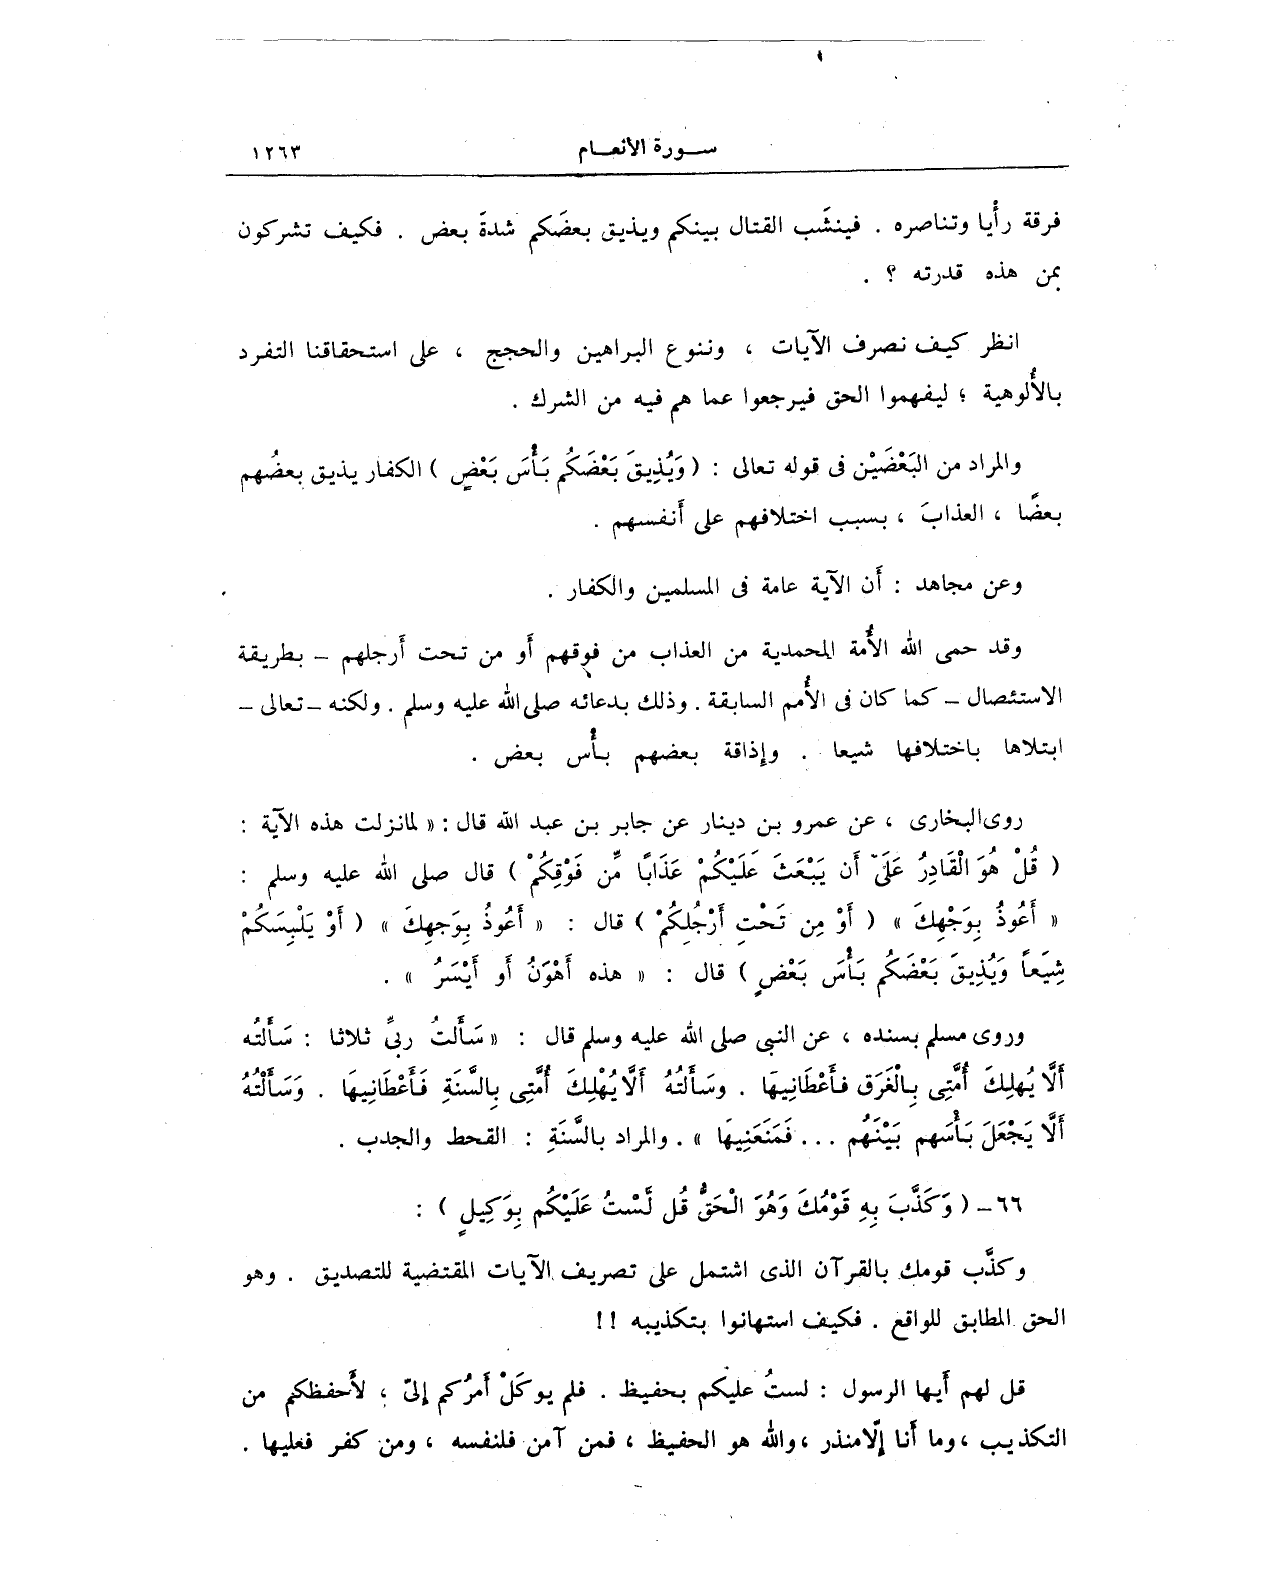 سـورة الأنعـام ١٢٦٣
فرقة رأيا وتناصره . فينشَب القتال بينكم ويذيق بعضَكم شدةَ بعض . فكيف تشركون
بمن هذه قدرته ؟ .
انظر كيف نصرف الآيات ، وننوع البراهين والحجج ، على استحقاقنا التفرد
بالأُلوهية ؛ ليفهموا الحق فيرجعوا عما هم فيه من الشرك .
والمراد من البَعْضَيْن فى قوله تعالى : ( وَيُذِيقَ بَعْضَكُم بَأْسَ بَعْضٍ ) الكفار يذيق بعضُهم
بعضًا ، العذابَ ، بسبب اختلافهم على أنفسهم .
وعن مجاهد : أن الآية عامة فى المسلمين والكفار .
وقد حمى الله الأُمة المحمدية من العذاب من فوقهم أو من تحت أرجلهم – بطريقة
الاستئصال – كما كان فى الأُمم السابقة . وذلك بدعائه صلى الله عليه وسلم . ولكنه – تعالى –
ابتلاها باختلافها شيعا . وإذاقة بعضهم بأْس بعض .
روى البخارى ، عن عمرو بن دينار عن جابر بن عبد الله قال : « لما نزلت هذه الآية :
( قُلْ هُوَ الْقَادِرُ عَلَىٓ أَن يَبْعَثَ عَلَيْكُمْ عَذَابًا مِّن فَوْقِكُمْ ) قال صلى الله عليه وسلم :
« أَعُوذُ بِوَجْهِكَ » ( أَوْ مِن تَحْتِ أَرْجُلِكُمْ ) قال : « أَعُوذُ بِوَجهِكَ » ( أَوْ يَلْبِسَكُمْ
شِيَعاً وَيُذِيقَ بَعْضَكُم بَأْسَ بَعْضٍ ) قال : « هذه أَهْوَنُ أَو أَيْسَرُ » .
وروى مسلم بسنده ، عن النبى صلى الله عليه وسلم قال : « سَأَلتُ ربىِّ ثلاثا : سَأَلتُه
أَلَّا يُهلِكَ أُمَّتِى بِالْغَرَق فأَعْطَانِيهَا . وسَأَلتُهُ أَلَّا يُهْلِكَ أُمَّتِى بِالسَّنَةِ فَأَعْطَانِيهَا . وَسَأَلْتُهُ
أَلَّا يَجْعَلَ بَأْسَهم بَيْنَهُم ... فَمَنَعَنِيهَا » . والمراد بالسَّنَةِ : القحط والجدب .
٦٦ – ( وَكَذَّبَ بِهِ قَوْمُكَ وَهُوَ الْحَقُّ قُل لَّسْتُ عَلَيْكُم بِوَكِيلٍ ) :
وكذَّب قومك بالقرآن الذى اشتمل على تصريف الآيات المقتضية للتصديق . وهو
الحق المطابق للواقع . فكيف استهانوا بتكذيبه !!
قل لهم أيها الرسول : لستُ عليكم بحفيظ . فلم يوكَلْ أمرُكم إلىّ ، لأَحفظكم من
التكذيب ، وما أنا إلّا منذر ، والله هو الحفيظ ، فمن آمن فلنفسه ، ومن كفر فعليها .